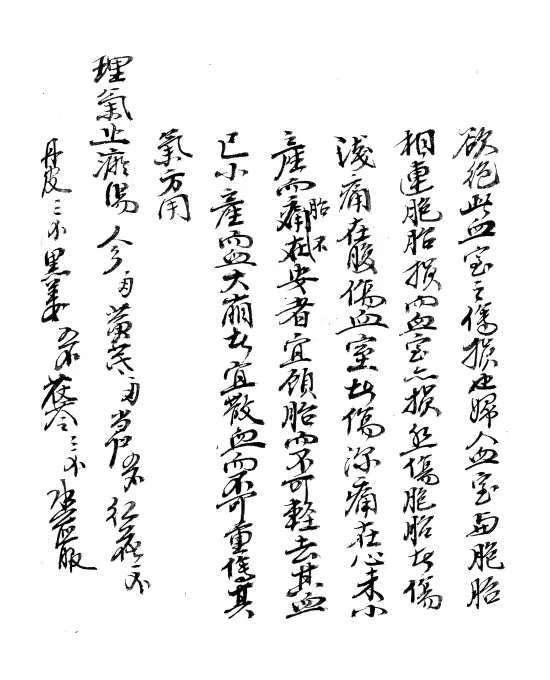 欲絕此血室之傷損也婦人血室與胞胎
相連胞胎損而血室亦損然傷胞胎者傷
淺痛在腹傷血室者傷深痛在心未小
產而胎不安者宜顧胎而不可輕去其血
已小產而血大崩者宜散血而不可重傷其
氣方用
理氣止瘀湯 參 兩 黃芪 兩 當歸 五錢 紅花 一錢
丹皮 三錢 黑姜 五錢 茯苓 三錢 水煎服